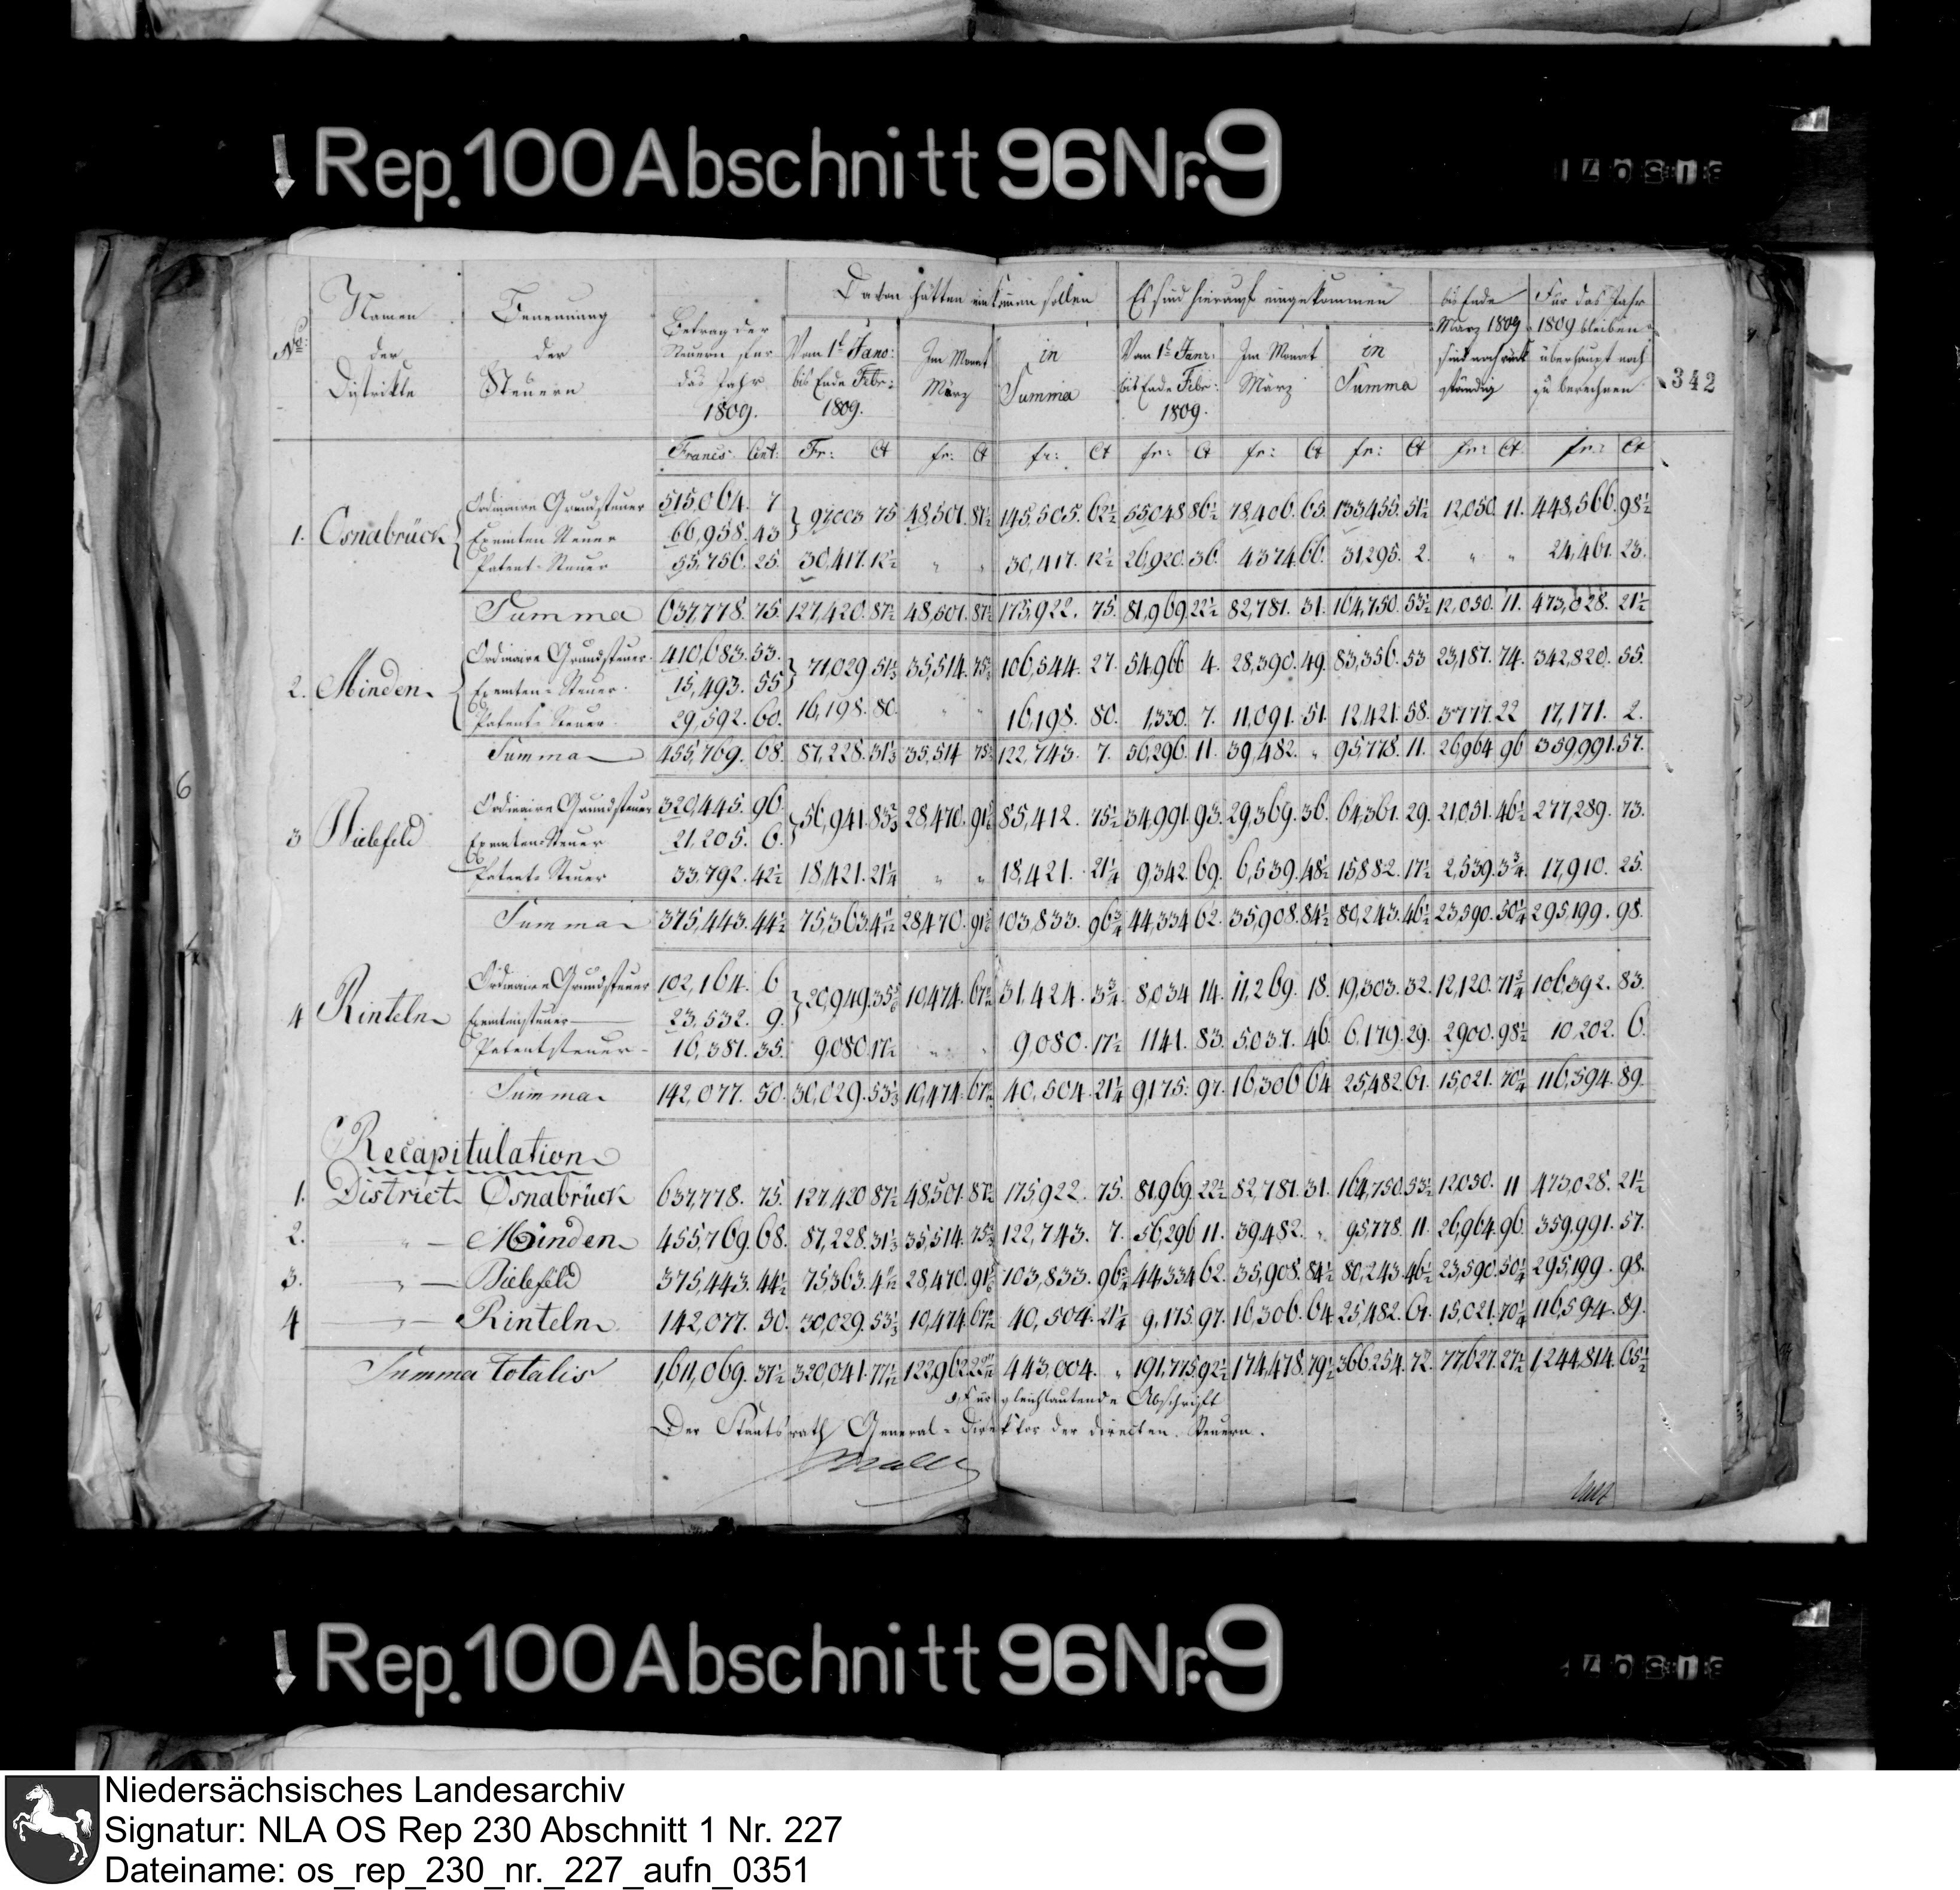 Rep. 100 Abschnitt 96 Nr. 9
No. Namen der Distrikte | Benennung der Steuern | Betrag der Steuern für das Jahr 1809. | Davon hätten einkommen sollen | Es sind hierauf eingekommen | bis Ende März 1809 sind noch rückständig | Für das Jahr 1809 bleiben überhaupt noch zu berechnen
342
Vom 1t Janr: bis Ende Febr: 1809. | Im Monat März | in Summa | Vom 1t Janr: bis Ende Febr: 1809. | Im Monat März | in Summa
Francs. Cent: | Fr: Ct | fr: Ct | fr: Ct | fr: Ct | fr: Ct | fr: Ct | fr: Ct | fr: Ct
1. Osnabrück
Ordinaire Grundsteuer 515,064. 7 | 97003 75 | 48,501. 87½ | 145,505. 62½ | 55,048 86½ | 78,406. 65. | 133,455. 51½ | 12,050. 11. | 448,566. 98½
Exemten Steuer 66,958. 43
Patent-Steuer 55,756. 25. | 30,417. 12½ | " " | 30,417. 12½ | 26,920. 36. | 4374. 66. | 31,295. 2. | " " | 24,461. 23.
Summa 637,778. 75. | 127,420. 87½ | 48,501. 87½ | 175,922. 75. | 81,969. 22½ | 82,781. 31. | 164,750. 53½ | 12,050. 11. | 473,028. 21½
2. Minden
Ordinaire Grundsteuer 410,683. 53. | 71,029 51⅓ | 35,514. 75⅔ | 106,544. 27. | 54,966 4. | 28,390. 49. | 83,356. 53 | 23,187. 74. | 342,820. 55.
Exemten-Steuer. 15,493. 55
Patent-Steuer 29,592. 60. | 16,198. 80. | " " | 16,198. 80. | 1,330. 7. | 11,091. 51. | 12,421. 58. | 3777. 22 | 17,171. 2.
Summa 455,769. 68. | 87,228. 31⅓ | 35,514 75⅔ | 122,743. 7. | 56,296. 11. | 39,482. " | 95,778. 11. | 26,964 96 | 359,991. 57.
3 Bielefeld
Ordinaire Grundsteuer 320,445. 96. | 56,941. 83⅔ | 28,470. 91⅚ | 85,412. 75½ | 34,991. 93. | 29,369. 36. | 64,361. 29. | 21,051. 46½ | 277,289. 73.
Exemten Steuer 21,205. 6.
Patent-Steuer 33,792. 42½ | 18,421. 21¼ | " " | 18,421. 21¼ | 9,342. 69. | 6,539. 48½ | 15882. 17½ | 2,539. 3¾ | 17,910. 25.
Summa 375,443. 44½ | 75,363. 4 11/12 | 28,470. 91⅚ | 103,833. 96¾ | 44,334 62. | 35,908. 84½ | 80,243. 46½ | 23,590. 50¼ | 295,199. 98.
4 Rinteln
Ordinaire Grundsteuer 102,164. 6 | 20,949. 35⅚ | 10,474. | 31,424. 3¾ | 8,034 14. | 11,269. 18. | 19,303. 32. | 12,120. 71¾ | 106,392. 83.
Exemtensteuer 23,532. 9.
Patentsteuer 16,381. 35. | 9,080. 17½ | " " | 9,080. 17½ | 1141. 83. | 5,037. 46. | 6,179. 29. | 2900. 98½ | 10,202. 6.
Summa 142,077. 50. | 30,029. 53⅓ | 10,474. | 40,504. 21¼ | 9,175. 97. | 16,306 64 | 25,482. 61. | 15,021. 70¼ | 116,594. 89.
Recapitulation
1. District Osnabrück 637,778. 75. | 127,420 87½ | 48,501. 87½ | 175,922. 75. | 81,969. 22½ | 82,781. 31. | 164,750. 53½ | 12050. 11 | 473,028. 21½
2. " — Minden 455,769. 68. | 87,228. 31⅓ | 35,514. 75⅔ | 122,743. 7. | 56,296 11. | 39,482. " | 95,778. 11. | 26,964. 96. | 359,991. 57.
3. " — Bielefeld 375,443. 44½ | 75363. 4 11/12 | 28,470. 91⅚ | 103,833. 96¾ | 44,334 62. | 35,908. 84½ | 80,243. 46½ | 23,590. 50¼ | 295,199. 98.
4 " — Rinteln 142,077. 50. | 30,029. 53⅓ | 10,474 | 40,504. 21¼ | 9,175. 97. | 16,306. 64. | 25,482. 61. | 15,021. 70¼ | 116,594. 89.
Summa totalis 1,611,069. 37½ | 320,041. 77 1/12 | 122,962. | 443,004. " | 191,775. 92½ | 174,478. 79½ | 366,254. 72. | 77,627. 27½ | 1,244,814. 65½
Für gleichlautende Abschrift
Der Staatsrath General-Direktor der directen Steuern.
Rep. 100 Abschnitt 96 Nr. 9
Niedersächsisches Landesarchiv
Signatur: NLA OS Rep 230 Abschnitt 1 Nr. 227
Dateiname: os_rep_230_nr._227_aufn_0351